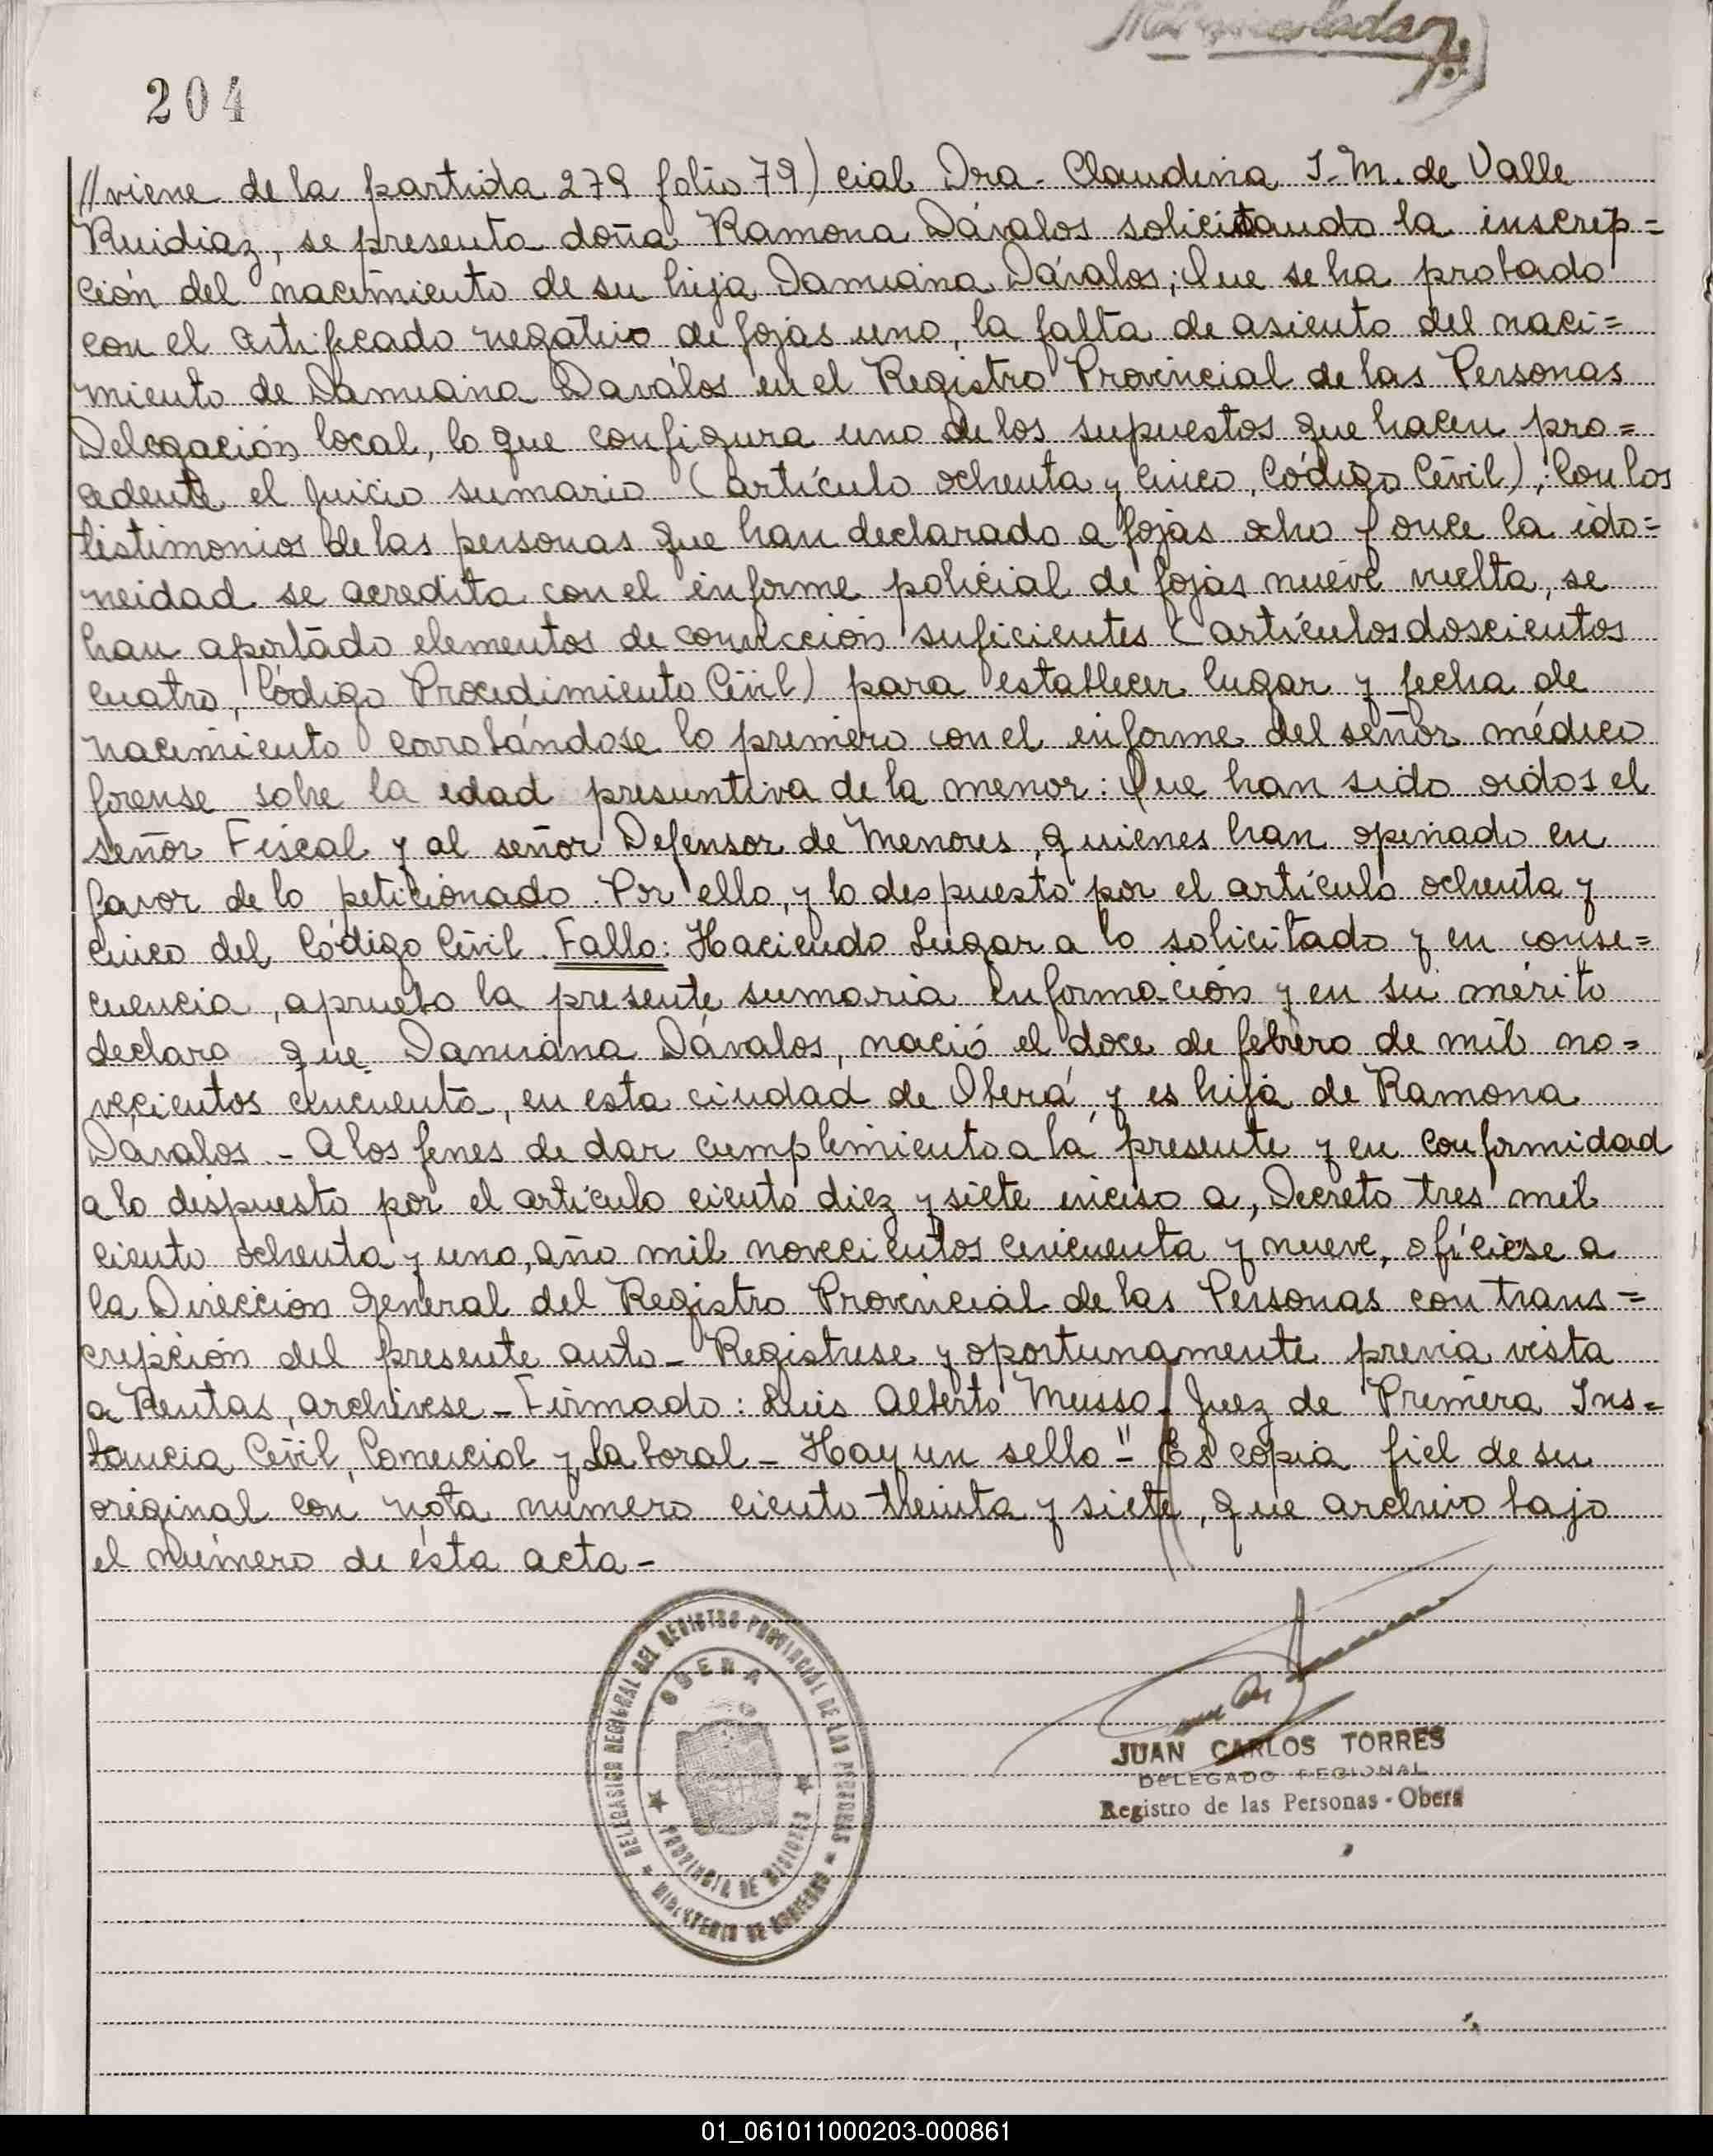 204
//viene de la partida 279 folio 79) cial Dra. Claudina I. M. de Valle
Ruidiaz, se presenta doña Ramona Dávalos solicitando la inscrip=
ción del nacimiento de su hija Damiana Dávalos; Que se ha probado
con el certificado negativo de fojas uno, la falta de asiento del naci=
miento de Damiana Davalos en el Registro Provincial de las Personas
Delegación local, lo que configura uno de los supuestos que hacen pro=
cedente el juicio sumario (artículo ochenta y cinco, Código Civil); Con los
testimonios de las personas que han declarado a fojas ocho y once la ido=
neidad se acredita con el informe policial de fojas nueve vuelta, se
han aportado elementos de convicción suficientes (artículos doscientos
cuatro, Código Procedimiento Civil) para establecer lugar y fecha de
nacimiento corrobándose lo primero con el informe del señor médico
forense sobre la edad presuntiva de la menor: Que han sido oidos el
señor Fiscal y al señor Defensor de Menores, quienes han opinado en
favor de lo peticionado. Por ello, y lo despuesto por el artículo ochenta y
cinco del Código Civil. Fallo: Haciendo Lugar a lo solicitado y en conse=
cuencia, apruebo la presente sumaria información y en su mérito
declaro que Damiana Dávalos, nació el doce de febrero de mil no=
vecientos cincuenta, en esta ciudad de Oberá, y es hija de Ramona
Dávalos.- A los fines de dar cumplimiento a la presente y en conformidad
a lo dispuesto por el artículo ciento diez y siete inciso a, Decreto tres mil
ciento ochenta y uno, año mil novecientos cincuenta y nueve, ofíciese a
la Dirección General del Registro Provincial de las Personas con trans=
cripción del presente auto- Registrese y oportunamente previa vista
a Rentas, archívese- Firmado: Luis Alberto Musso- Juez de Primera Ins=
tancia Civil, Comercial y Laboral- Hay un sello"- Es copia fiel de su
original con nota número ciento treinta y siete, que archivo bajo
el número de ésta acta-
DELEGACION REGIONAL DEL REGISTRO PROVINCIAL DE LAS PERSONAS
MINISTERIO DE GOBIERNO
OBERA
PROVINCIA DE MISIONES
JUAN CARLOS TORRES
DELEGADO REGIONAL
Registro de las Personas - Obera
01_061011000203-000861